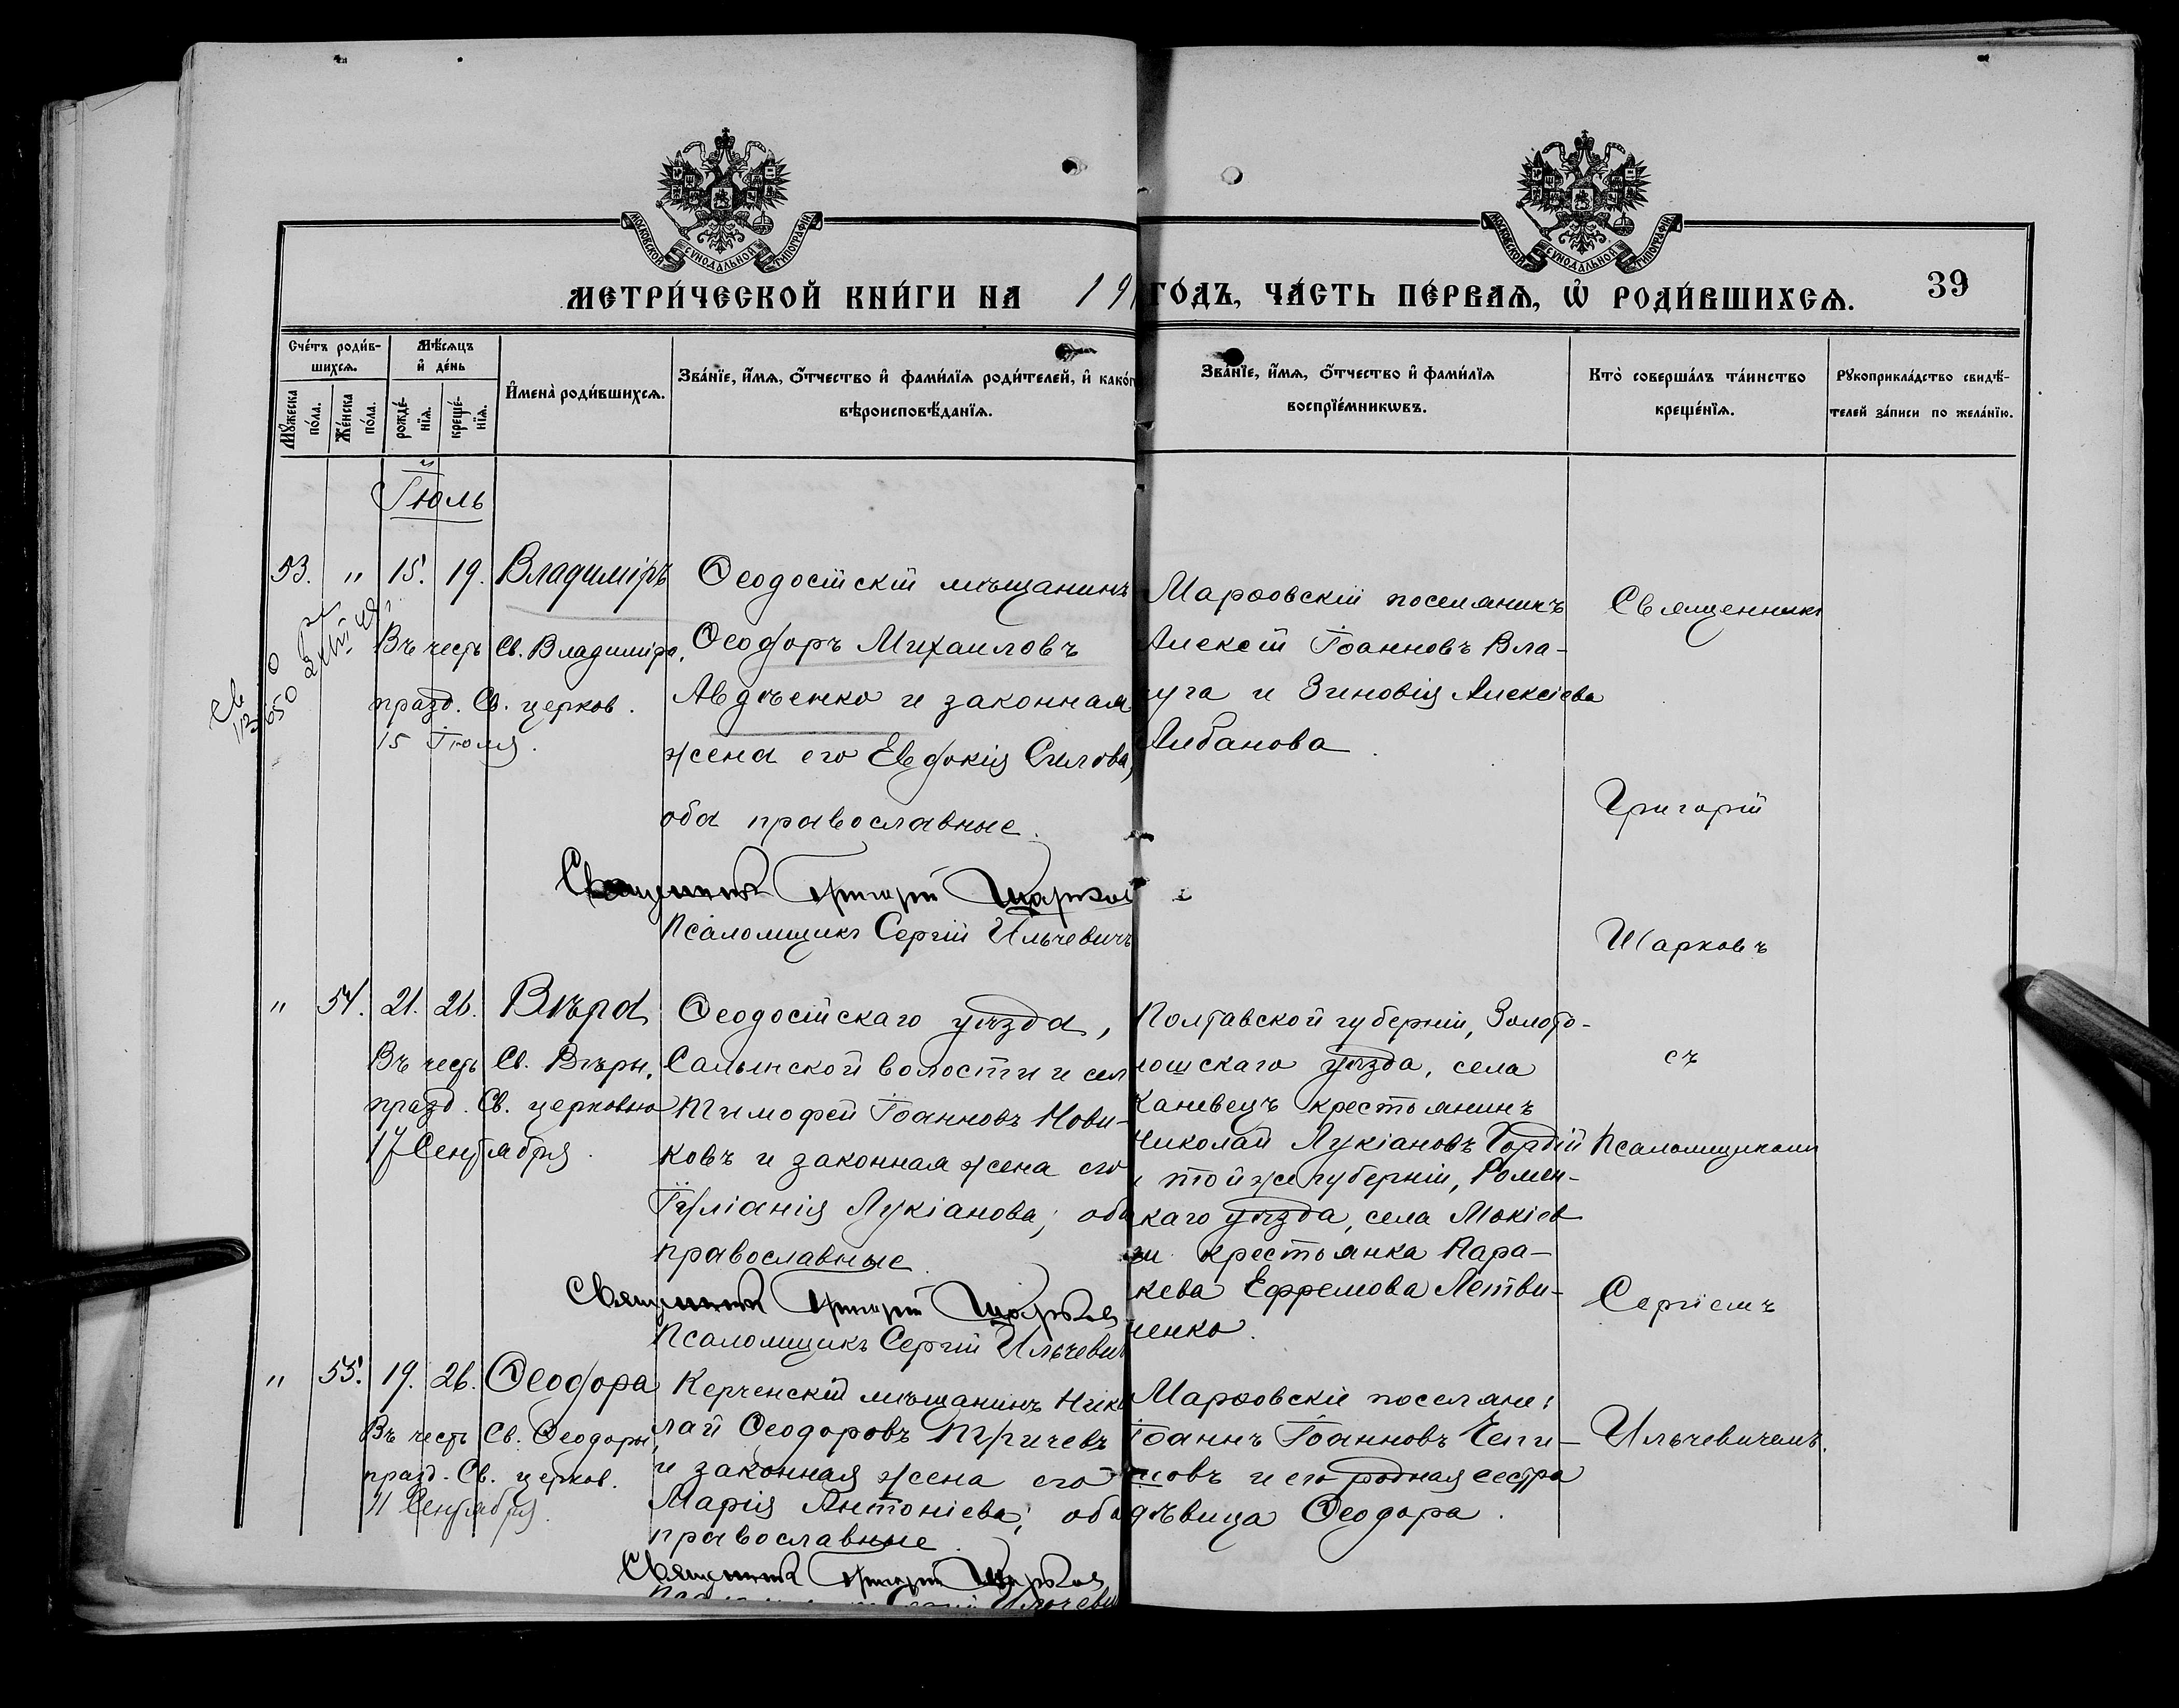 МОСКОВСКОЙ СѴНОДАЛЬНОЙ ТИПОГРАФІИ
МОСКОВСКОЙ СѴНОДАЛЬНОЙ ТИПОГРАФІИ
МЕТРИ́ЧЕСКОЙ КНИ́ГИ НА 191
ГО́ДЪ, ЧА́СТЬ ПЕ́РВАѦ, Ѽ РОДИ́ВШИХСѦ.
39
Сче́тъ роди́в-
шихсѧ.
Мꙋжеска
по́ла.
Же́нска
по́ла.
Мѣ́сѧцъ
и҆ де́нь
рожде́-
нїѧ.
креще́-
нїѧ.
И҆мена̀ роди́вшихсѧ.
Зва́нїе, и҆́мѧ, ѻ҆́тчество и҆ фами́лїѧ роди́телей, и҆ како́г
вѣроисповѣ́данїѧ.
Зва́нїе, и҆́мѧ, ѻ҆́тчество и҆ фами́лїѧ
воспрїе́мникѡвъ.
Кто̀ соверша́лъ та́инство
креще́нїѧ.
Рꙋкоприкла́дство свидѣ́-
телей за́писи по жела́нїю.
Іюль
53. " 15. 19. Владиміръ
Въ честь Св. Владиміра,
празд. Св. церков.
15 Іюля.
Ѳеодосійскій мѣщанинъ
Ѳеодоръ Михаиловъ
Авдѣенко и законная
жена его Евдокія Силова,
оба православные.
Священникъ Григорій Шарков
Псаломщикъ Сергій Ильчевичъ
Марѳовскій поселянинъ
Алексій Іоанновъ Вла-
уга и Зиновія Алексіева
Албанова.
Священникъ
Григорій
Шарковъ
" 54. 21. 26. Вѣра
Въ честь Св. Вѣры,
празд. Св. церковью
17 Сентября.
Ѳеодосійскаго уѣзда,
Сальинской волости и сел
Тимофей Іоанновъ Нови-
ковъ и законная жена его
Іуліанія Лукіанова; оба
православные.
Священникъ Григорій Шарков
Псаломщикъ Сергій Ильчевич
Полтавской губерніи, Золото-
ношскаго уѣзда, села
Каневецъ крестьянинъ
Николай Лукіановъ Гордій
, той же губерніи, Ромен-
каго уѣзда, села Мокіев
ки крестьянка Пара-
кева Ефремова Летви-
ченко.
съ
Псаломщикомъ
Сергіемъ
" 55. 19. 26. Ѳеодора
Въ честь Св. Ѳеодоры,
празд. Св. церков.
11 Сентября.
Керченскій мѣщанинъ Нико
лай Ѳеодоровъ Тричевъ
и законная жена его
Марія Антоніева; оба
православные.
Священникъ Григорій Шарков
Сергій Ильчеви
Марѳовскіе поселяне:
Іоаннъ Іоанновъ
шовъ и его родная сестра
дѣвица Ѳеодора.
Ильчевичемъ.